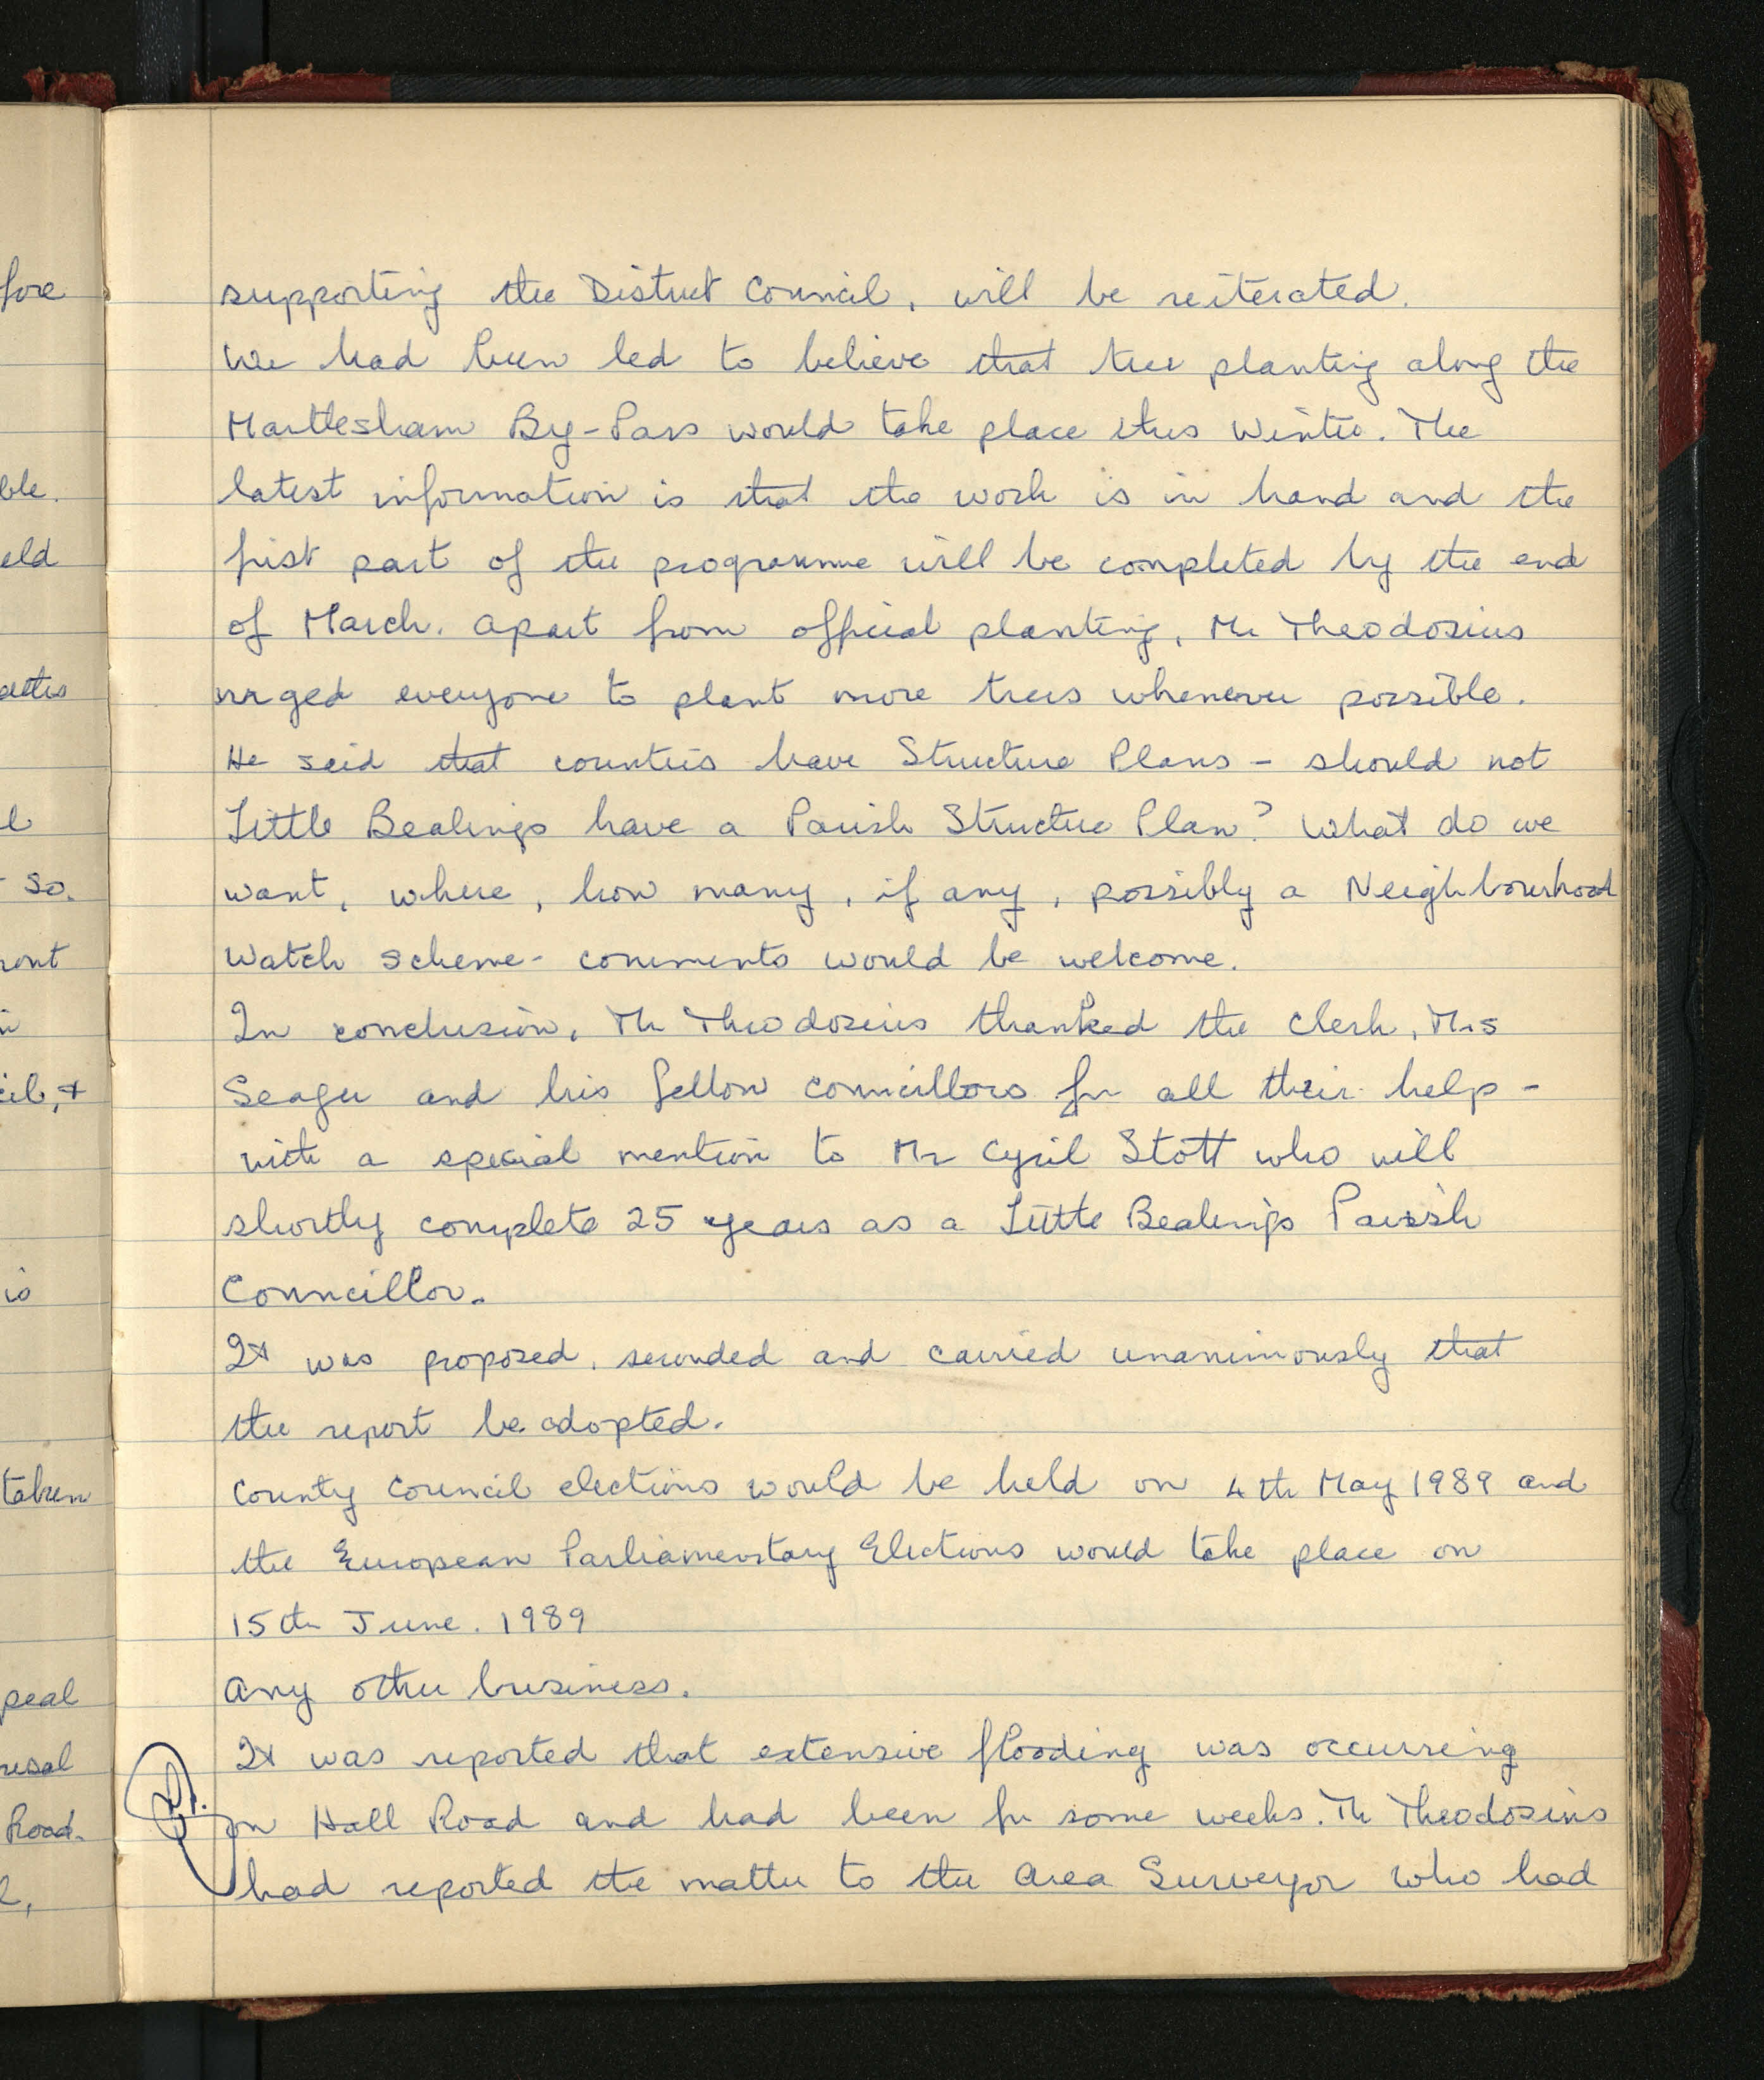 supporting the District Council, will be reiterated.
We had been led to believe that tree planting along the
Martlesham By-Pass would take place this Winter. The
latest information is that the work is in hand and the
first part of the programme will be completed by the end
of March. Apart from official planting, Mr Theodosius
urged everyone to plant more trees whenever possible.
He said that counties have Structure Plans - should not
Little Bealings have a Parish Structure Plan? What do we
want, where, how many, if any, possibly a Neighbourhood
Watch Scheme - comments would be welcome.
In conclusion, Mr Theodosius thanked the Clerk, Mrs
Seager and his fellow Councillors for all their help -
with a special mention to Mr Cyril Stott who will
shortly complete 25 years as a Little Bealings Parish
Councillor.
It was proposed, seconded and carried unanimously that
the report be adopted.
County Council elections would be held on 4th May 1989 and
the European Parliamentary Elections would take place on
15th June. 1989
Any other business.
It was reported that extensive flooding was occurring
on Hall Road and had been for some weeks. Mr Theodosius
had reported the matter to the Area Surveyor who had
fore
ble.
eld
l
so.
ront
cil, +
is
taken
peal
usal
Road.
l,